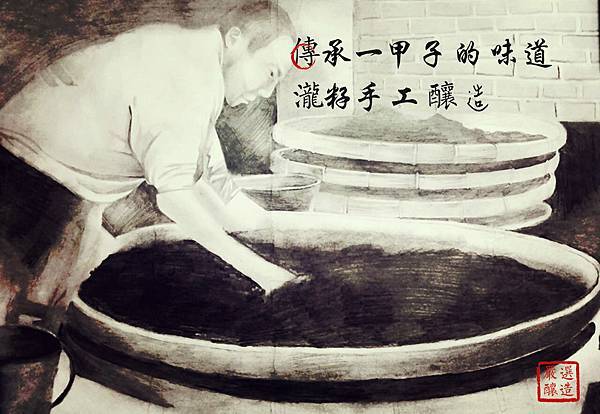 傳承一甲子的味道
瀧籽手工釀造
嚴選
釀造